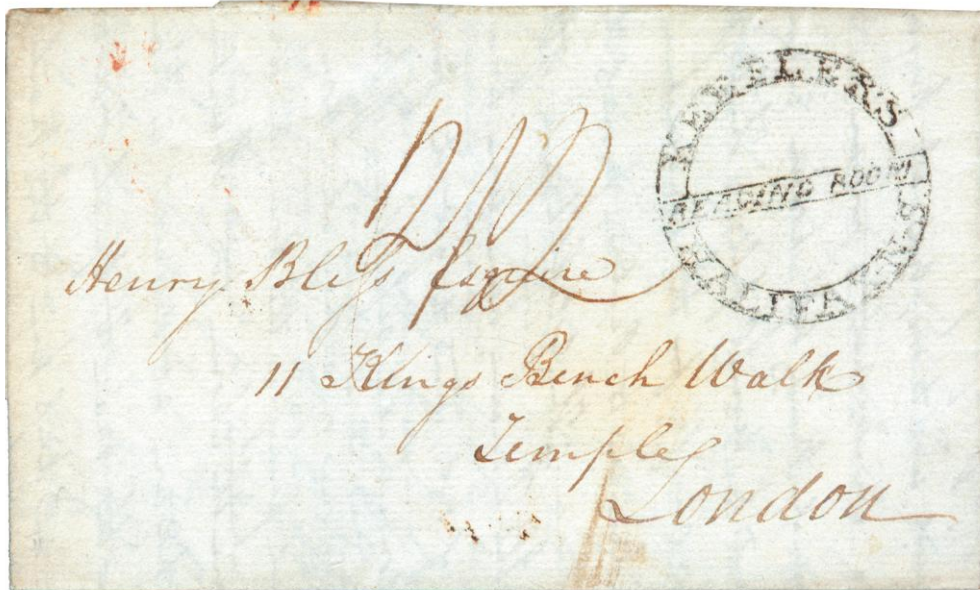 KEEFLER'S
READING ROOM
HALIFAX N.S.
Henry Bliss Esquire
11 Kings Bench Walk
Temple
London